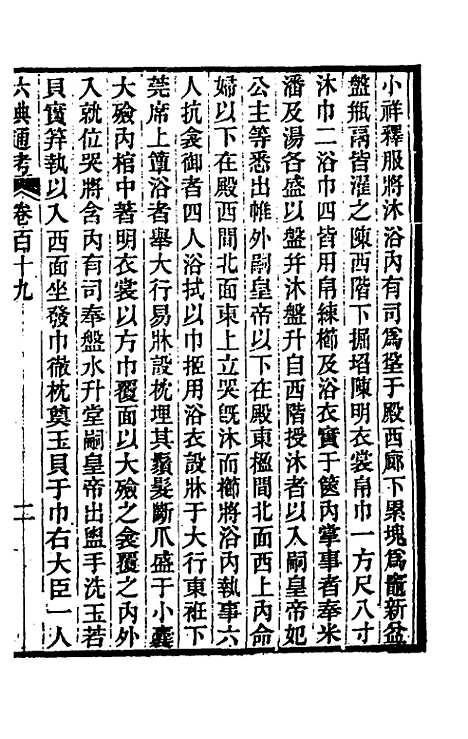 小祥釋服將沐浴內有司爲垼于殿西廊下累塊爲竈新盆
盤瓶鬲皆濯之陳西階下掘坎陳明衣裳帛巾一方尺八寸
沐巾二浴巾四皆用帛練櫛及浴衣實于篋內掌事者奉米
潘及湯各盛以盤幷沐盤升自西階授沐者以入嗣皇帝妃
公主等悉出帷外嗣皇帝以下在殿東楹間北面西上內命
婦以下在殿西間北面東上立哭旣沐而櫛將浴內執事六
人抗衾御者四人浴拭以巾挋用浴衣設牀于大行東衽下
莞席上簟浴者舉大行易牀設枕埋其鬚髮斷爪盛于小囊
大殮內棺中著明衣裳以方巾覆面以大殮之衾覆之內外
入就位哭將含內有司奉盤水升堂嗣皇帝出盥手洗玉若
貝實笄執以入西面坐發巾徹枕奠玉貝于巾右大臣一人
六典通考 卷百十九 二